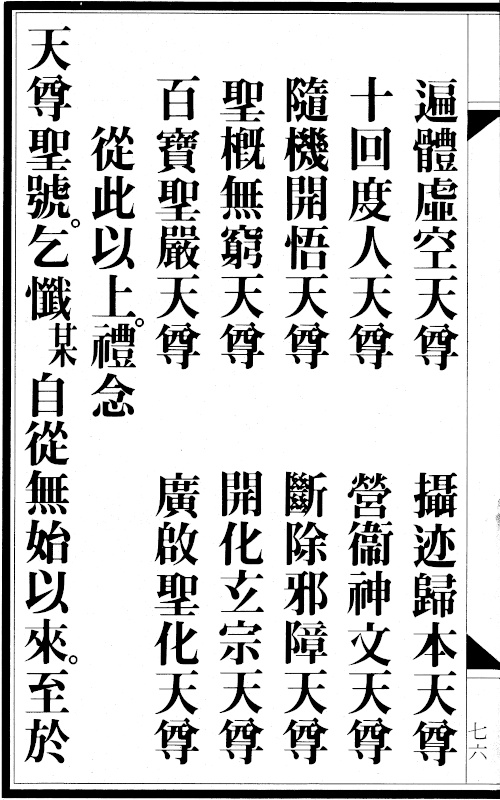 遍體虛空天尊　攝迹歸本天尊
十回度人天尊　營衞神文天尊
隨機開悟天尊　斷除邪障天尊
聖概無窮天尊　開化玄宗天尊
百寶聖嚴天尊　廣啟聖化天尊
從此以上。禮念
天尊聖號。乞懺某自從無始以來。至於
七六